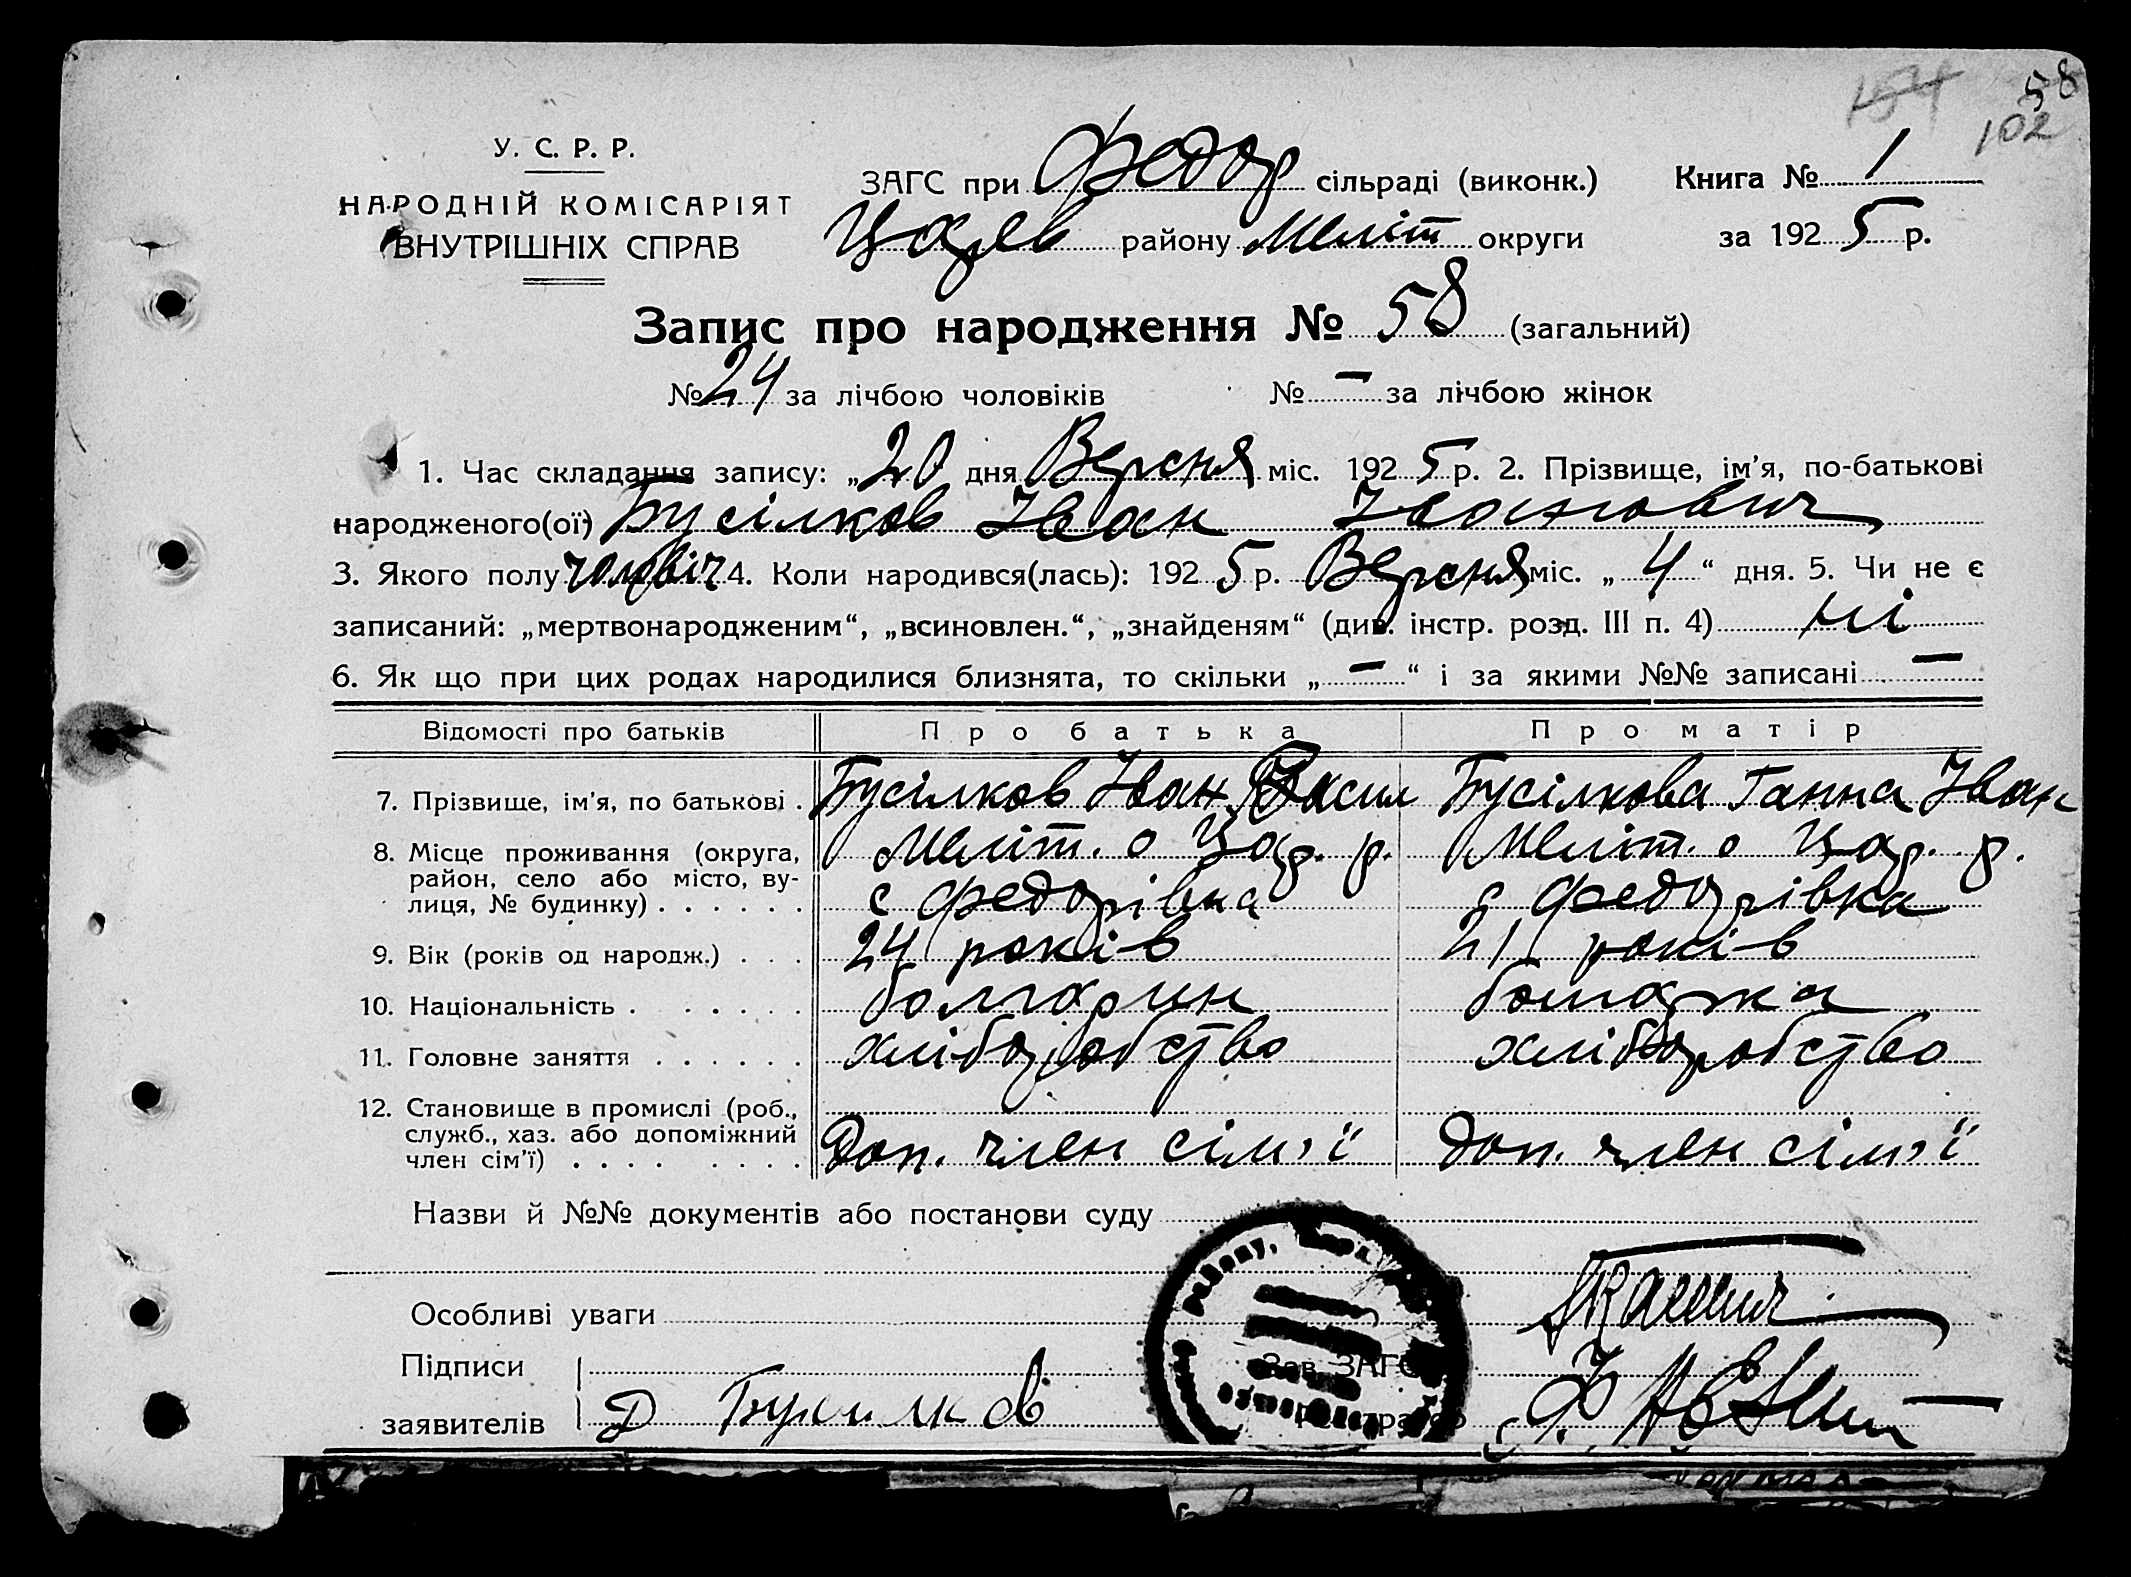 154 58
102
У. С. Р. Р.
НАРОДНІЙ КОМІСАРІЯТ
ВНУТРІШНІХ СПРАВ
ЗАГС при Федор сільраді (виконк.) Книга № 1
Царев району Меліт округи за 1925 р.
Запис про народження № 58 (загальний)
№ 24 за лічбою чоловіків № — за лічбою жінок
1. Час складання запису: „20 дня Версня міс. 1925 р. 2. Прізвище, ім'я, по-батькові
народженого(ої) Бусілков Іван Іванович
3. Якого полу чоловіч 4. Коли народився(лась): 1925 р. Версня міс. „4“ дня. 5. Чи не є
записаний: „мертвонародженим“, „всиновлен.“, „знайденям“ (див. інстр. розд. III п. 4) ні
6. Як що при цих родах народилися близнята, то скільки „—“ і за якими №№ записані —
Відомості про батьків Про батька Про матір
7. Прізвище, ім'я, по батькові . Бусілков Іван Васил Бусілкова Ганна Іван
8. Місце проживання (округа, Меліт. о Цар. р. Меліт. о Цар. р.
район, село або місто, ву-
лиця, № будинку) . . . . . . с Федорівка с Федорівка
9. Вік (років од народж.) . . . 24 років 21 років
10. Національність . . . . . . болгарин болгарка
11. Головне заняття . . . . . . хліборобство хліборобство
12. Становище в промислі (роб.,
служб., хаз. або допоміжний
член сім'ї) . . . . . . . . Доп. член сім'ї Доп. член сім'ї
Назви й №№ документів або постанови суду
району,
Особливі уваги
Підписи Зав. ЗАГС
заявителів Д Бусилков